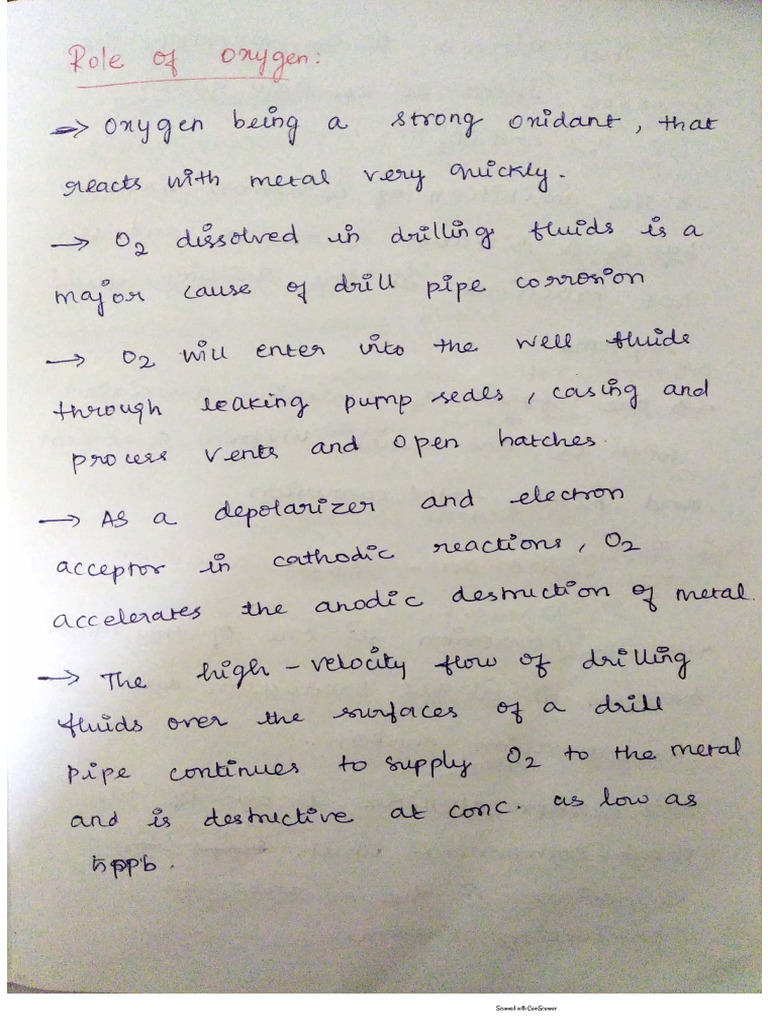 Role of Oxygen:
→ Oxygen being a strong oxidant, that
reacts with metal very quickly.
→ O2 dissolved in drilling fluids is a
major cause of drill pipe corrosion
→ O2 will enter into the well fluids
through leaking pump seals, casing and
process vents and open hatches.
→ As a depolarizer and electron
acceptor in cathodic reactions, O2
accelerates the anodic destruction of metal.
→ The high-velocity flow of drilling
fluids over the surfaces of a drill
pipe continues to supply O2 to the metal
and is destructive at conc. as low as
5ppb.
Scanned with CamScanner